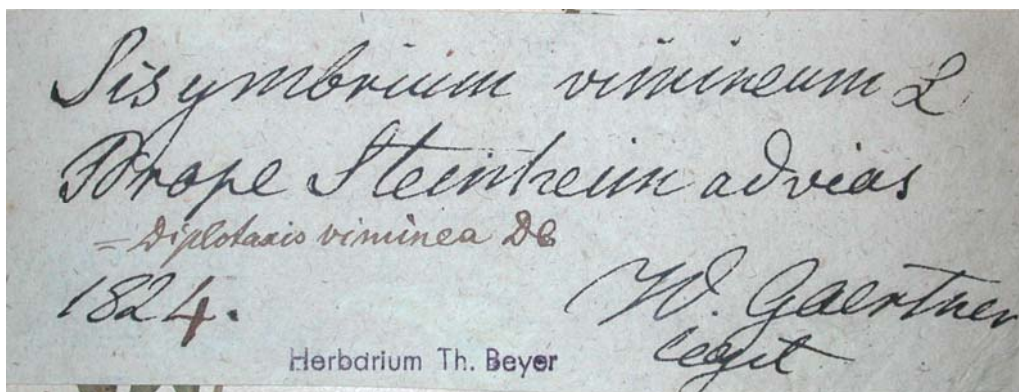 Sisymbrium vimineum L
Prope Steinheim ad vias
= Diplotaxis viminea DC
1824.
W. Gaertner
legit
Herbarium Th. Beyer